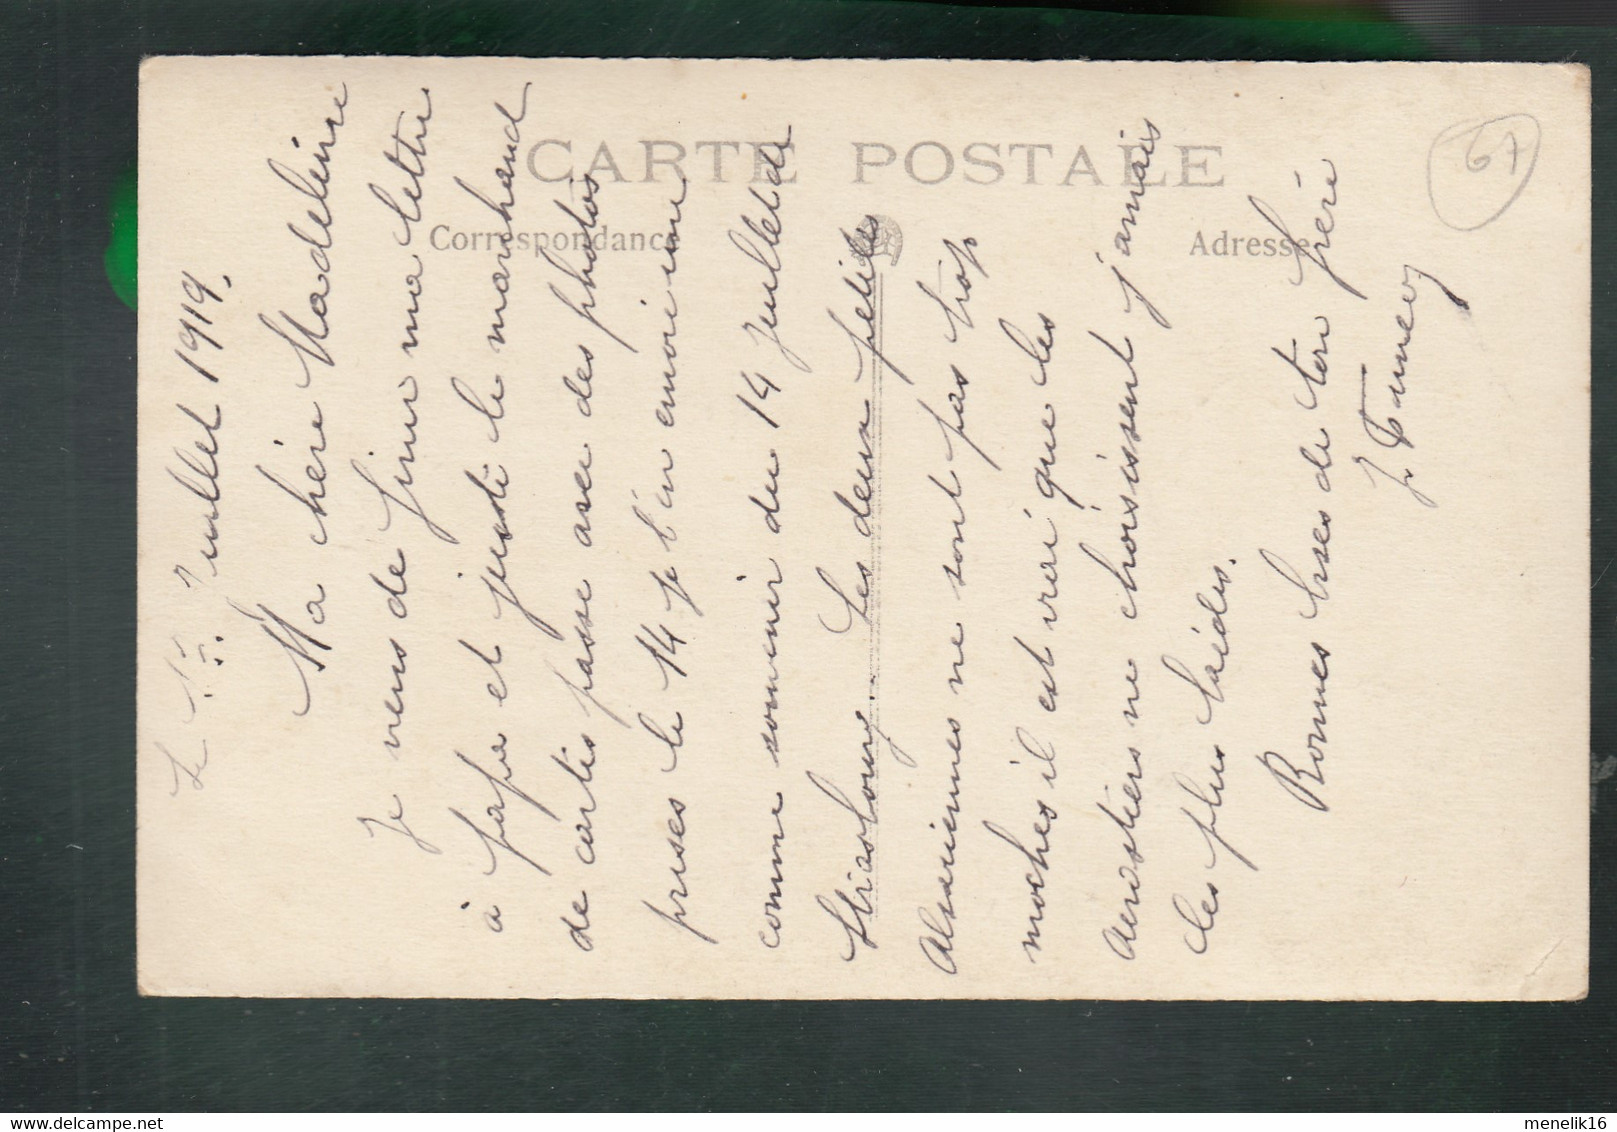 CARTE POSTALE
Correspondance
Adresse
67
Le Juillet 1919.
Ma chère Madeleine
Je viens de finir ma lettre
à papa et juste le marchand
de cartes passe avec des photos
prises le 14 je t'en envoie une
comme souvenir du 14 Juillet de
Strasbourg. Les deux petites
Alsaciennes ne sont pas trop
moches il est vrai que les
Aérostiers ne choisissent jamais
les plus laides.
Bonnes bises de ton frère
menelik16